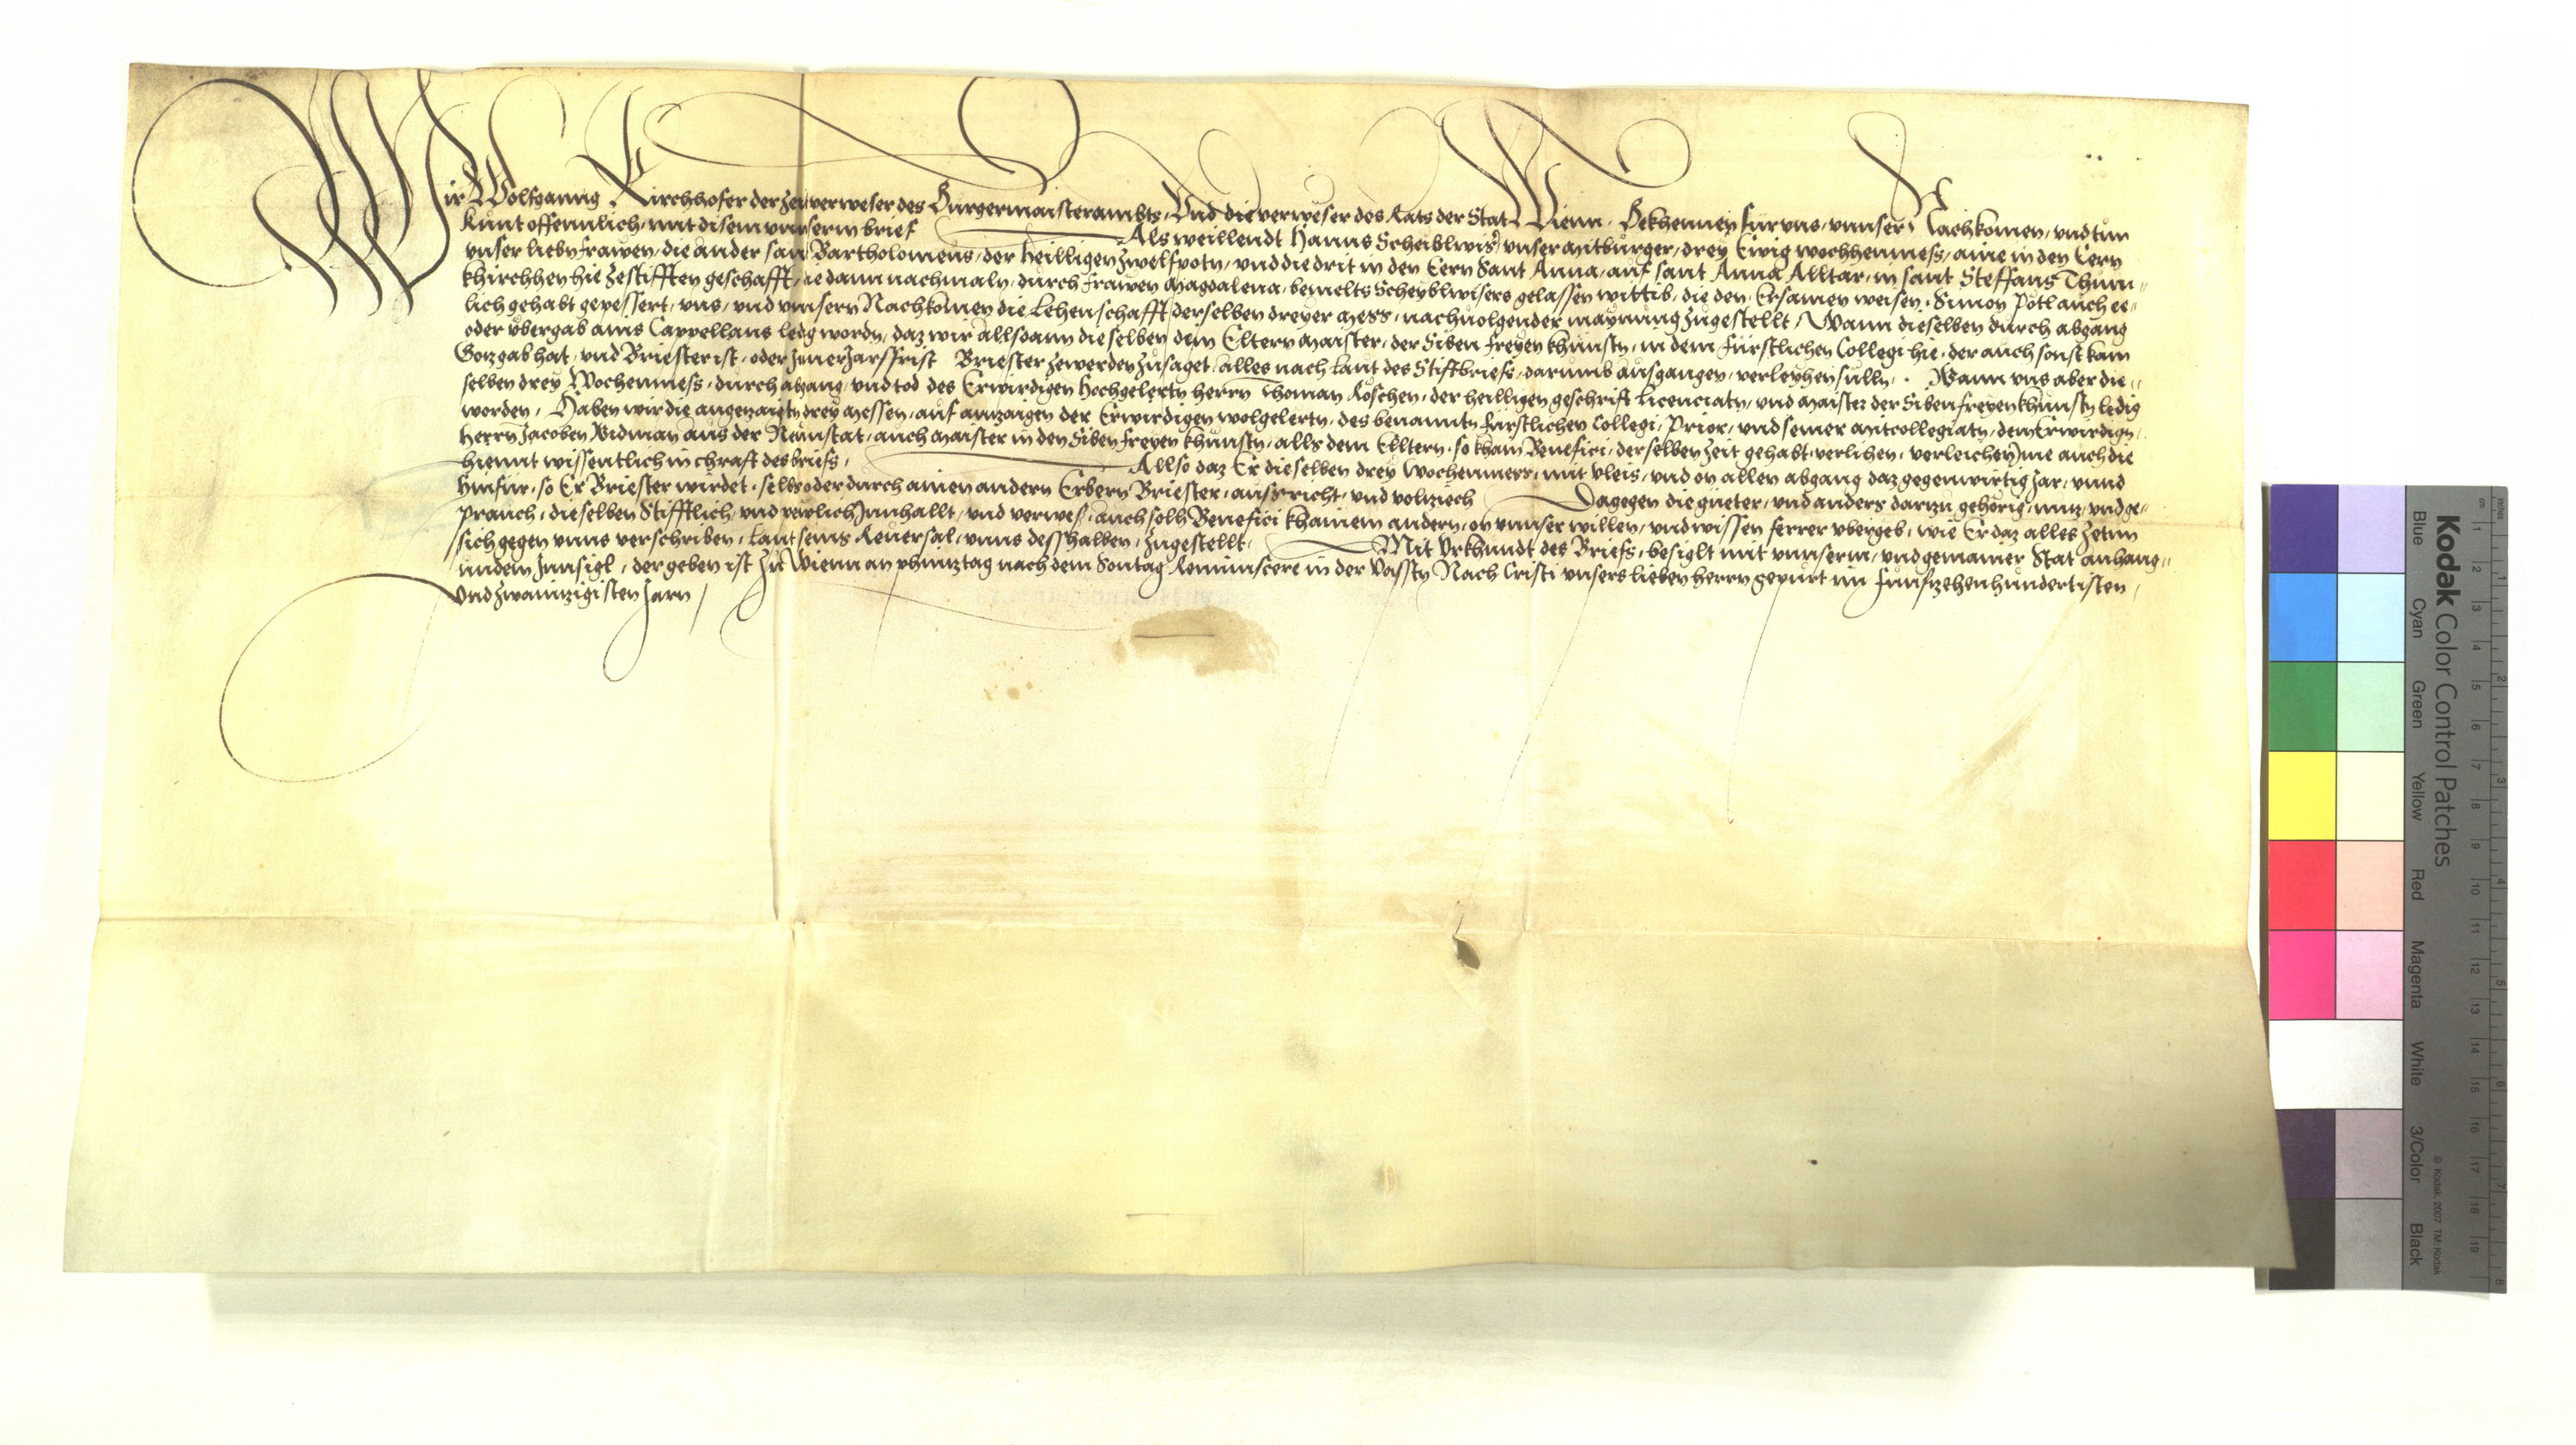 Wir Wolfganng Kirchhofer der Zeit verweser des Burgermaisterambts, Vnd die verweser des Rats der Stat Wienn. Bekhennen für vns, vnnser Nachkomen, vnd tun
kunt offennlich, mit disem vnnserm brief Als weillendt Hanns Scheiblwiser vnser mitburger, drey Ewig wochenmess, aine in den Eern
vnser liebn frawen, die ander sant Bartholomeus, der heilligen zwelfpotn, vnd die drit in den Eern Sant Anna, auf sant Anna Alltar, in sant Steffans Thum„
khirchhen hie zestifften geschafft, die dann nachmaln, durch frawen Magdalena, bemelts Scheyblwisers gelassen wittib, die den Ersamen weisen, Simon Pötl auch ee„
lich gehabt gepessert, vns, vnd vnnsern Nachkomen die Lehenschafft derselben dreyer Mess, nachuolgender maynung zugestellt, Wann dieselben durch abgang
oder vbergab ains Cappellans ledig wordn, daz wir allsdann dieselben dem Eltern maister, der Siben freyen khunstn, in dem fürstlichen Collegi hie, der auch sonst kain
Gotzgab hat, vnd Briester ist, oder in ner Jarsfrist Briester zewerden zusaget, alles nach laut des Stiftbriefs, darumb ausgangen, verleyhen sulln. Wann vns aber die„
selben drey Wochenmess, durch abgang vnd tod des Erwirdigen Hochgelertn herrn Thoman Röschen, der heilligen geschrift Licenciatn, vnd Maister der Siben freyen khunstn ledig
worden, Haben wir die angezaigtn drey Messen, auf anzaigen der Erwirdigen wolgelertn, des benanntn fürstlichen Collegi, Prior, vnd seiner mitcollegiatn, dem Erwirdign
herrn Jacoben Widman aus der Neunstat, auch Maister in den Siben freyen khunstn, alls dem Elltern, so khain Benefici, derselben Zeit gehabt, verlihen, verleichen Ime auch die
hiemit wissentlich in chraft des briefs, Allso daz Er dieselben drey Wochenmess, mit vleis, vnd on allen abgang daz gegenwirtig Jar, vnnd
hinfür, so Er Briester wirdet, selbs oder durch ainen andern Erbern Briester, aussricht, vnd volziech Dagegen die gueter, vnd anders darzu gehörig, nutz, vnd ge„
prauch, dieselben Stifftlich, vnd pewlich Innhallt, vnd verwes, auch solh Benefici khainem andern, on vnnser willen, vnd wissen ferrer vbergeb, wie Er daz alles zetun
sich gegen vnns verschriben, laut seins Reuersal, vnns desshalben, zugestellt. Mit Vrkhundt des Briefs, besiglt mit vnnserm, vnd gemainer Stat anhang„
undem Innsigl, der geben ist zu Wienn an phintztag nach dem Sontag Reminiscere in der Vasstn Nach Cristi vnsers lieben herrn gepurt im funfzehenhundertisten
vnd zwaintzigisten Jarn
Kodak Color Control Patches
Blue Cyan Green Yellow Red Magenta White 3/Color Black
© Kodak, 2007 TM: Kodak